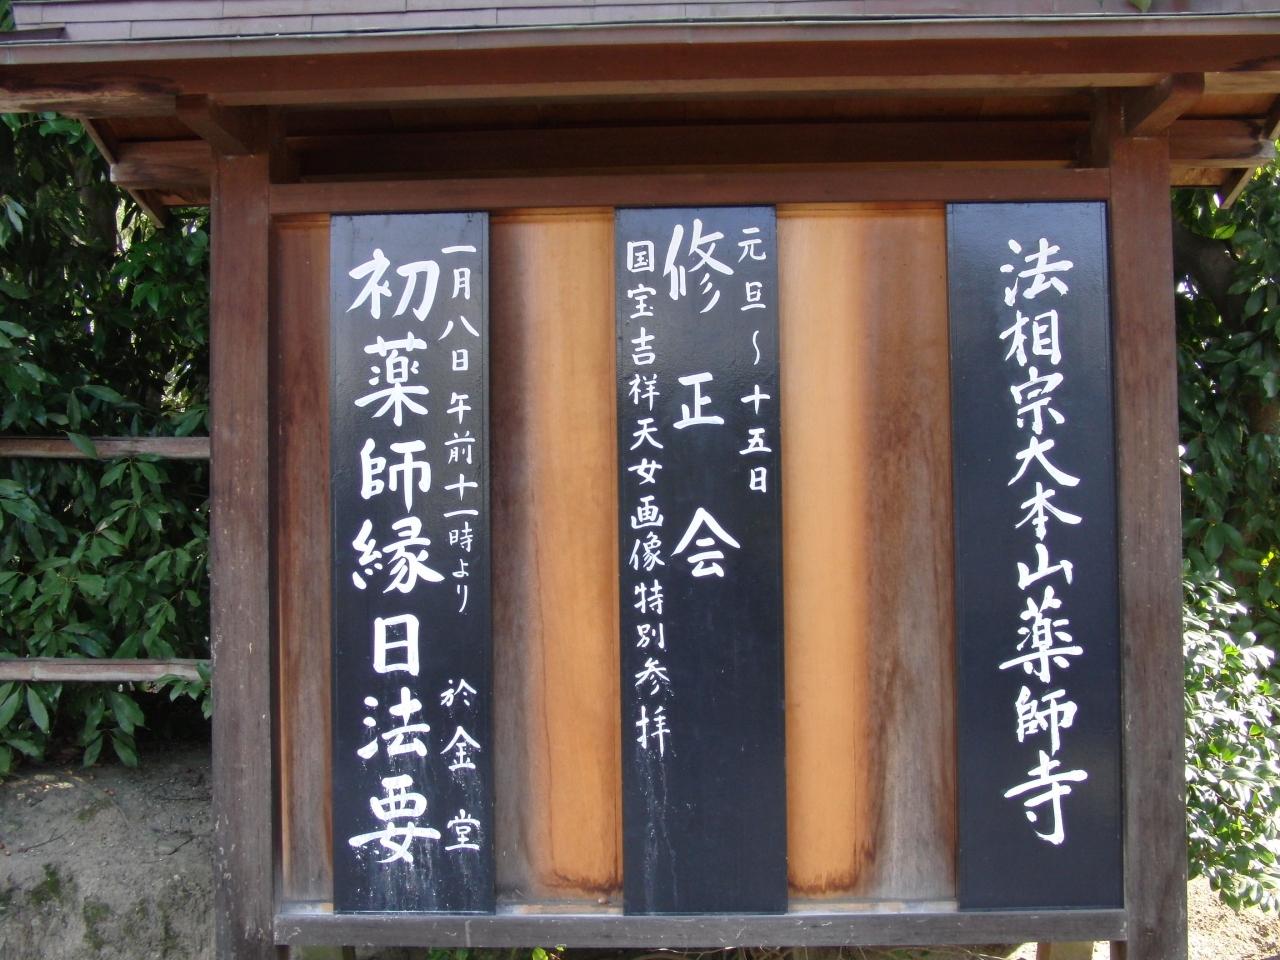 法相宗大本山薬師寺
元旦～十五日
修正会
国宝吉祥天女画像特別参拝
一月八日午前十一時より 於金堂
初薬師縁日法要